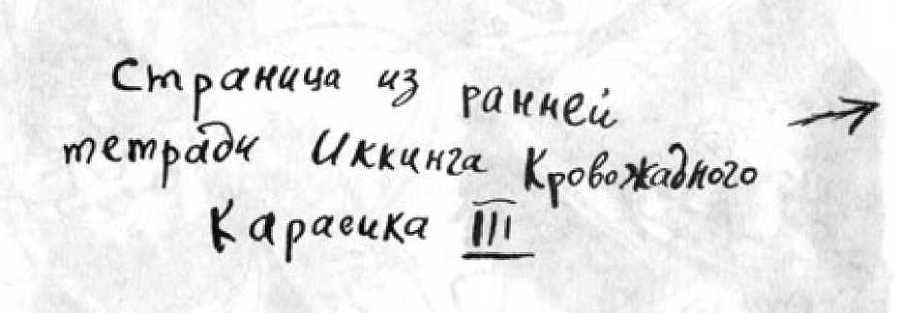 Страница из ранней
тетради Иккинга Кровожадного
Карасика III